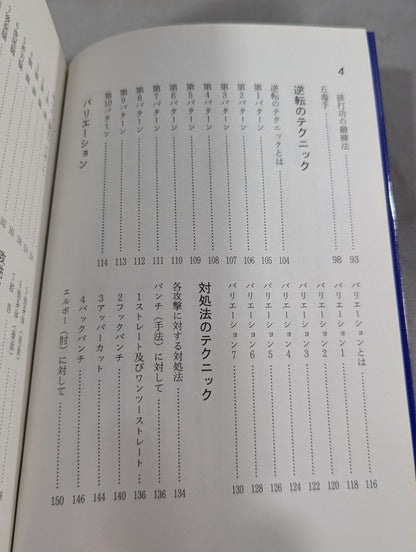 4
排打功の鍛練法……93
五毒手……98
逆転のテクニック
逆転のテクニックとは……104
第1パターン……105
第2パターン……106
第3パターン……107
第4パターン……108
第5パターン……109
第6パターン……110
第7パターン……110
第8パターン……111
第9パターン……112
第10パターン……113
バリエーション……114
バリエーションとは……116
バリエーション1……118
バリエーション2……120
バリエーション3……122
バリエーション4……124
バリエーション5……126
バリエーション6……128
バリエーション7……130
対処法のテクニック
各攻撃に対する対処法……134
パンチ（手法）に対して……136
1ストレート及びワンツーストレート……136
2フックパンチ……140
3アッパーカット……144
4バックパンチ……146
エルボー（肘）に対して……150